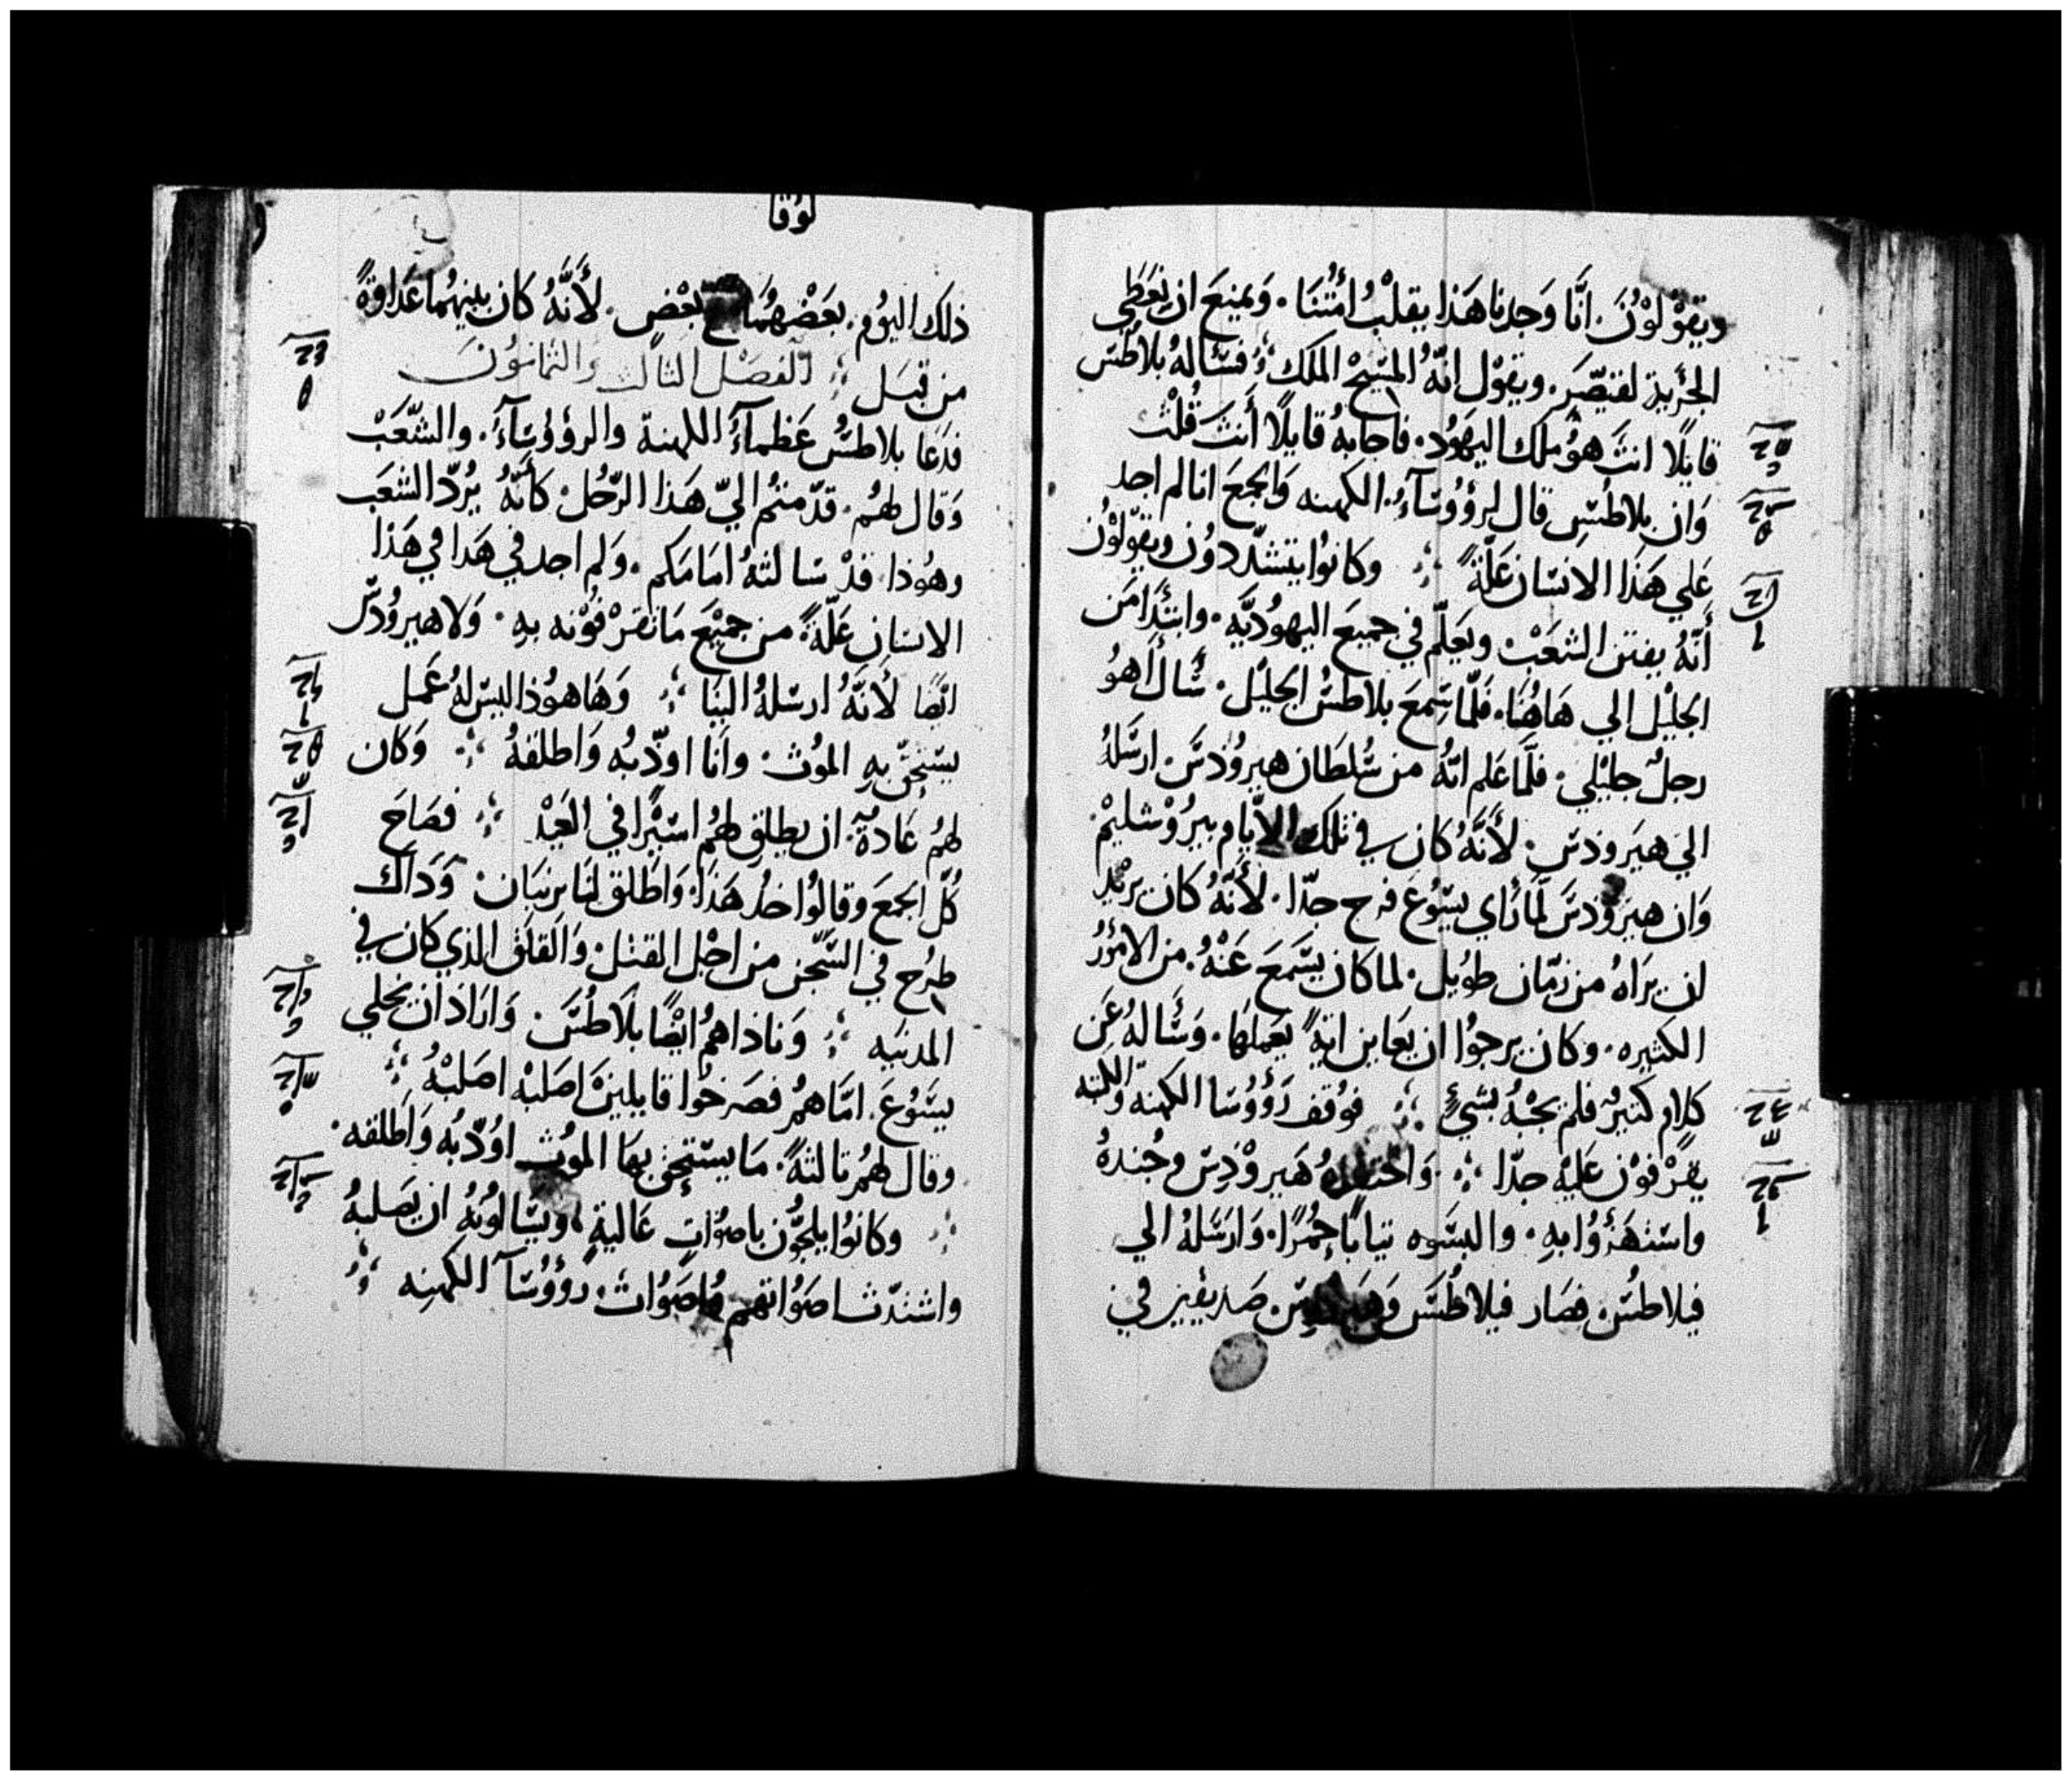 ويقوْلوْنَ. انَّا وَجدنا هَذا يقلبُ امُتنَا. وَيمنعَ ان يعَطَي
الجزية لقيصّر. ويقوْل انّهُ المسَيحْ الملك فسَالهُ بلاطسَ
قايلًا انتَ هوُ ملك اليهوُد. فاجابهُ قايلًا أنتَ قُلتْ
وَان بلاطسِ قال لرؤوُسَآءُ. الكهنه وَالجمعَ انا لم اجد
عَلي هَذا الانسَان عَلّةً وكانوُا يتشدّدوُن ويقوّلوْن
أنّهُ يفتن الشعَبْ ويعَلّم في جميعَ اليهوُديَّه. وابتدَا من
الجليْل إلي هَاهُنَا. فَلّما سَمعَ بلاطسُ الجليْل. سَّال أهوُ
رجلٌ جليْلي. فلّمَا عَلم انّهُ من سُلطَان هيروُدسَ. ارسَلهُ
الي هيَرودسَ. لأَنَّهُ كان في تلك الاَّيام بيرُوْشليمْ.
وَان هيروُدسَ لّما رَاي يسّوُعَ فرح جدّا. لأنّهُ كان يريْد
ان يرَاهُ من زمّان طوُيل. لما كان يسَّمعَ عَنْهُ. من الامُوُرُ
الكثيره. وكان يرجوُا ان يعَاين ايةً يعَملهَا. وَسَّالهُ عَن
كلام كثيرٌ فلم يجبْهُ بشيٍ فوُقف رَؤوُسَا الكهنه والكتبه
يقرْفوْن عَليْه جدّا وَاحتقرهُ هَيروْدِسَ وجُندهُ
واستهَزؤُا بهِ. والبسَوه تيابًا حمُرًا. وَارسَلهُ الي
فيلاطسُ. فصَار فيلاطُسَ وَهيروُدسَ. صَديقيْن في
لوُقا
ذلك اليوُم. بعَضْهُمَا مع بعْضٍ. لأنَّهُ كان بينهُما عَدَاوةً
من قبَل الفصَل التالت والثمانوُنَ
فدَعَا بلاطسُ عَظمآءَ الكهنة والرؤوُسَآءَ. والشّعَبْ
وَقال لهُم. قدّمتمُ اليّ هَذا الرّجُل كأنّهُ يرُدّ الشعَب
وهوُذا. قدْ سَالتهُ امَامَكم. وَلم اجد في هَدا في هَذا
الانسَان عَلّةً من جميْعَ مَا تقرْفوُنه بهِ. وَلا هيروُدسّ
ايّضًا لأَنَّهُ ارسَلهُ الينَا وَهَا هوُذا ليسَ لهُ عَمل
يسَتحِقّ بهِ الموُتْ. وانَا اوُدّبُه وَاطلقهُ وَكان
لهُم عَادةٌ. ان يطلقِ لهُم اسَيرًا في العَيدْ فصَاحَ
كُلّ الجمعَ وقالوُا خدُ هَذا. وَاطَلق لنَا برنبَان. وَدَاك
طرُح في السّجن من اجْل القتلْ. وَالقلق الذي كان في
المدَينَيه وَنادَاهمُ ايضًا بلاطُسَ. وَارَاد ان يخلي
يسَّوُعَ. امَّا همُ فصَرخوُا قايليْنَ اصَلبهْ اصَلبْهُ
وقال لهُم تالتةً. مَا يسَتحِق بهَا الموُت اوُدّبُه وَاطلقه.
وكانوُا يلجّوُن باصوُاتٍ عَاليةٍ، ويسَالوُنُهُ ان يصَلبهُ
واشتدّت اصَوُاتهم واصَوُات. رُؤوُسَآ الكهنِه